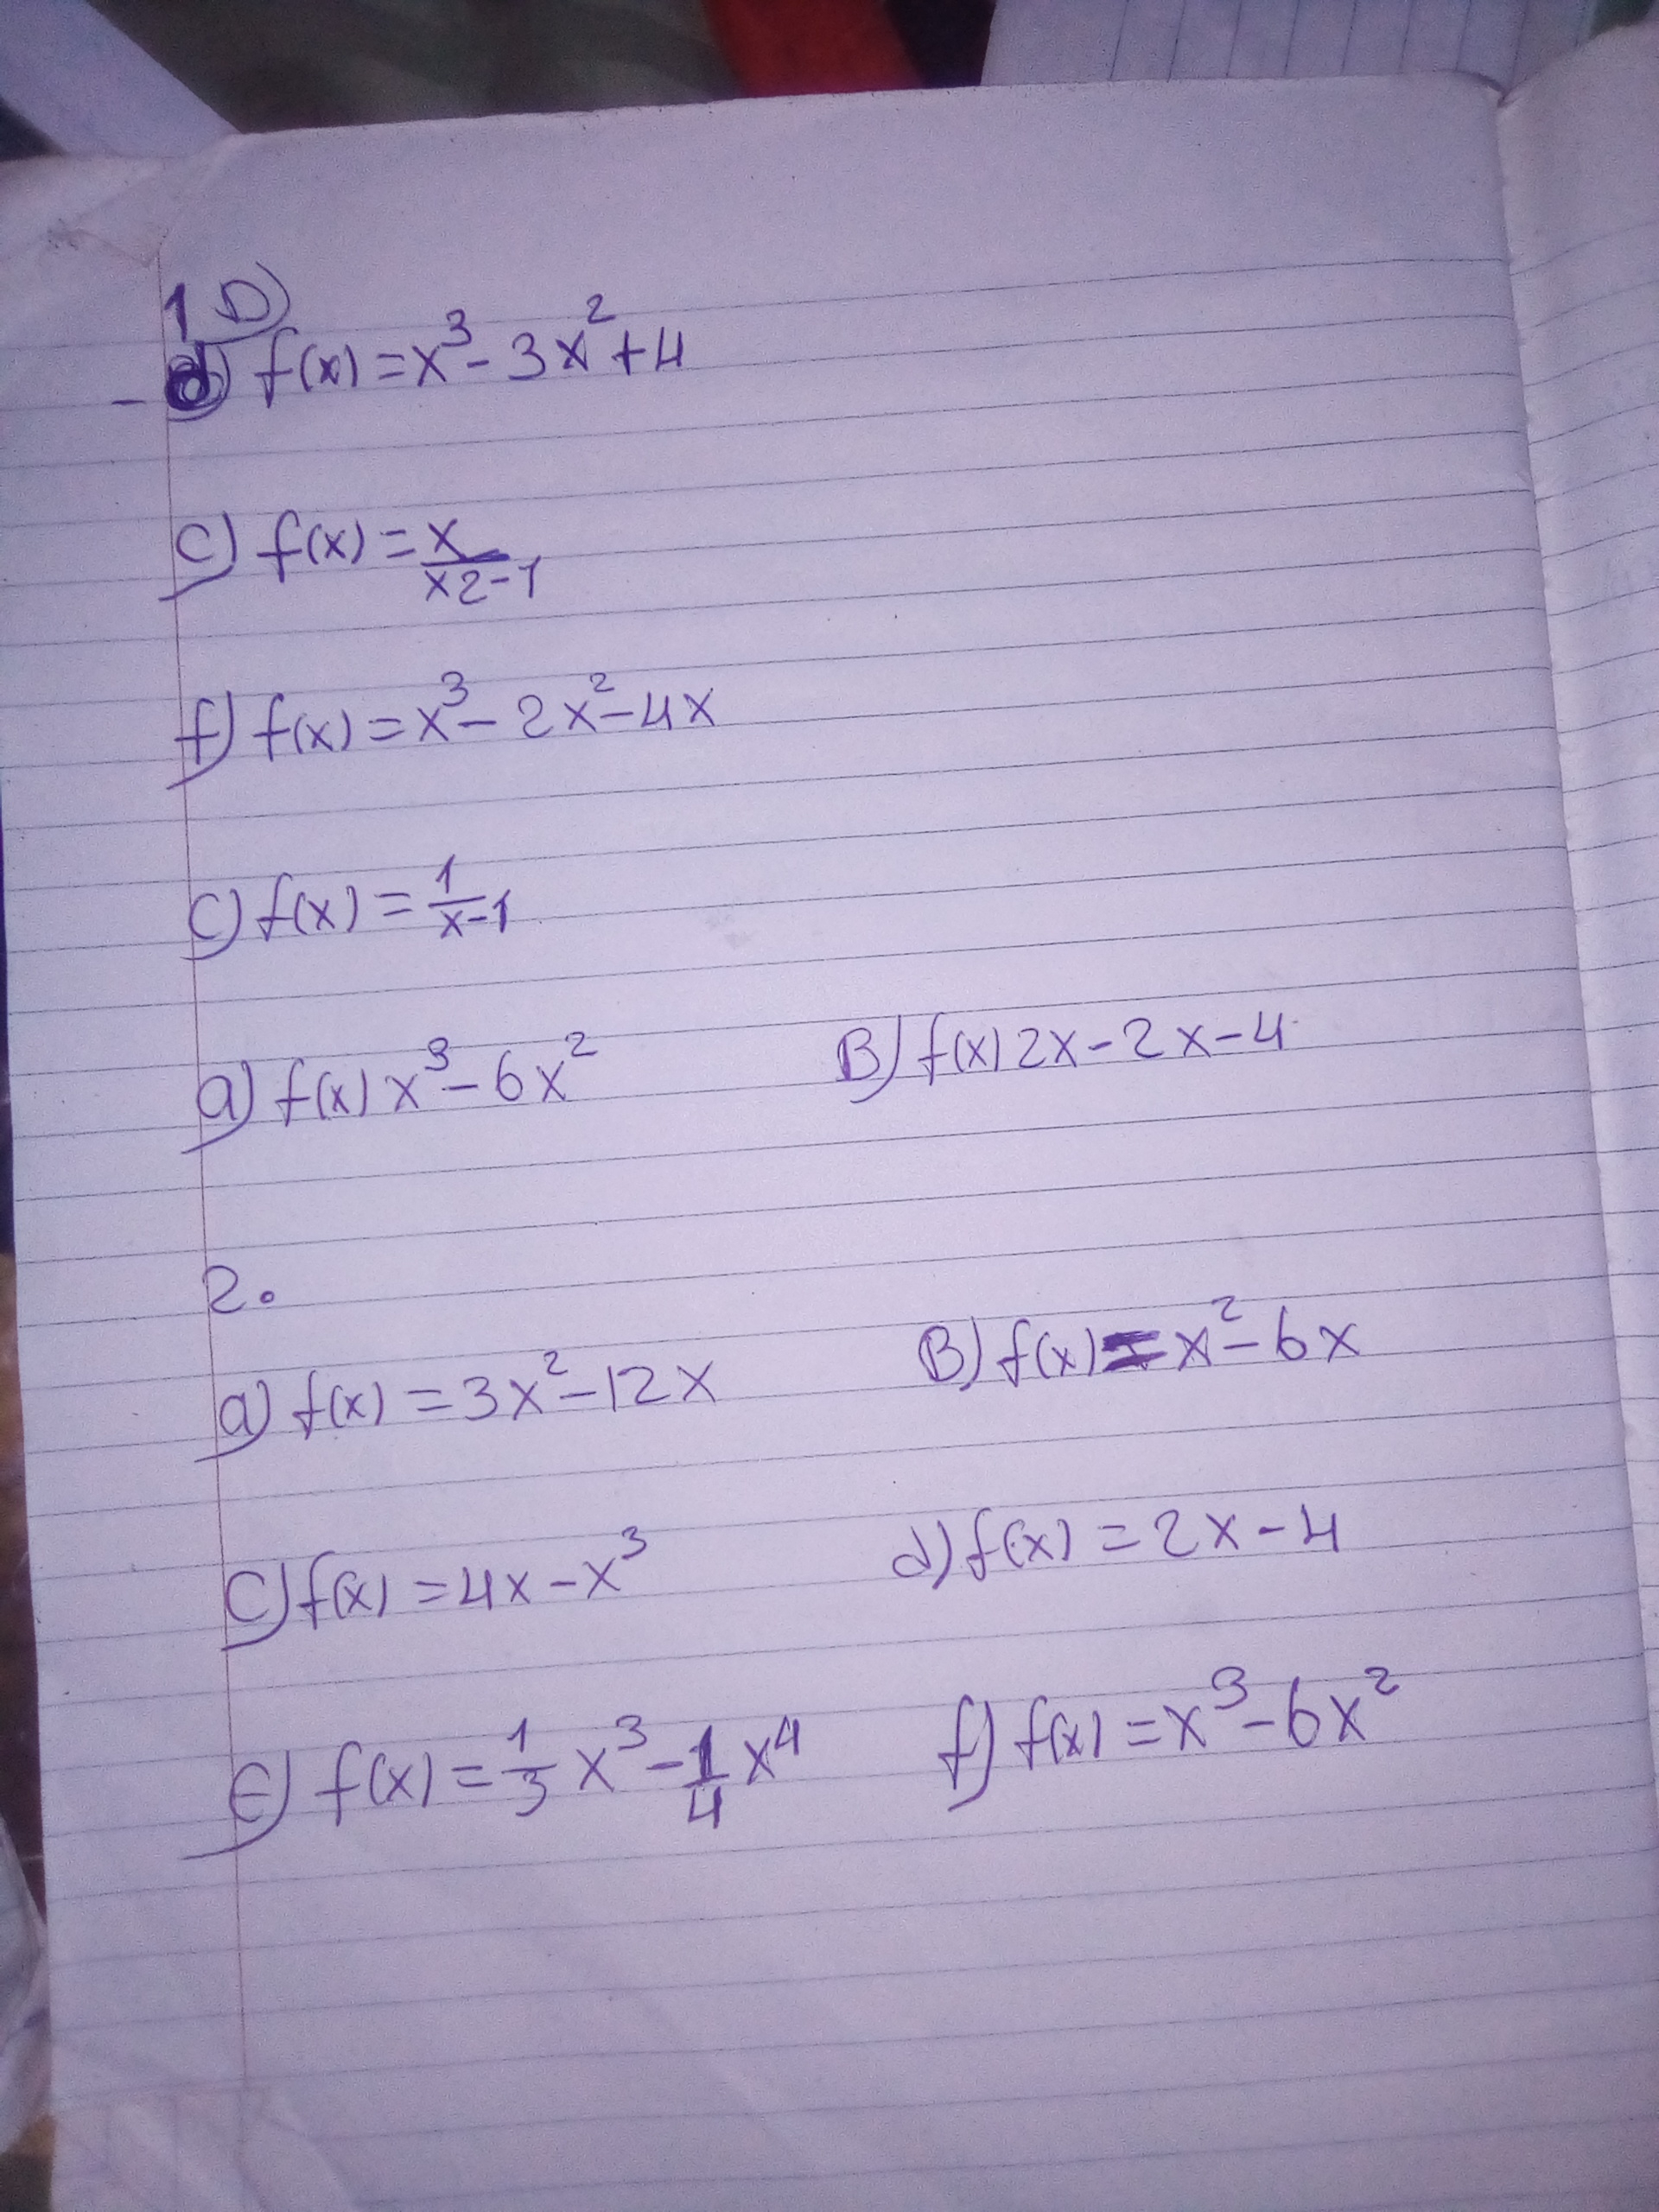 1 D)
- d) f(x) = x³ - 3x² + 4
c) f(x) = x/x2-1
f) f(x) = x³ - 2x² - 4x
c) f(x) = 1/x-1
a) f(x) x³ - 6x² B) f(x) 2x - 2x - 4
2.
a) f(x) = 3x² - 12x B) f(x) = x² - 6x
c) f(x) = 4x - x³ d) f(x) = 2x - 4
e) f(x) = 1/3 x³ - 1/4 x⁴ f) f(x) = x³ - 6x²